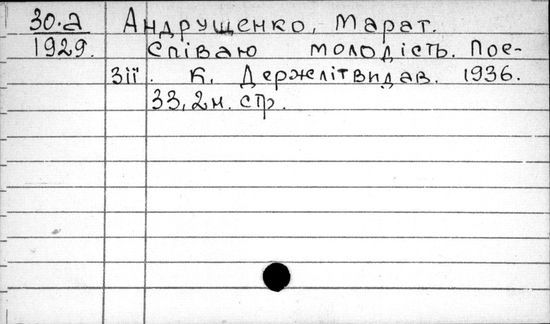 30.а Андрущенко, Марат.
1929. Співаю молодість. Пое-
зії. К. Держлітвидав. 1936.
33, 2н. стр.